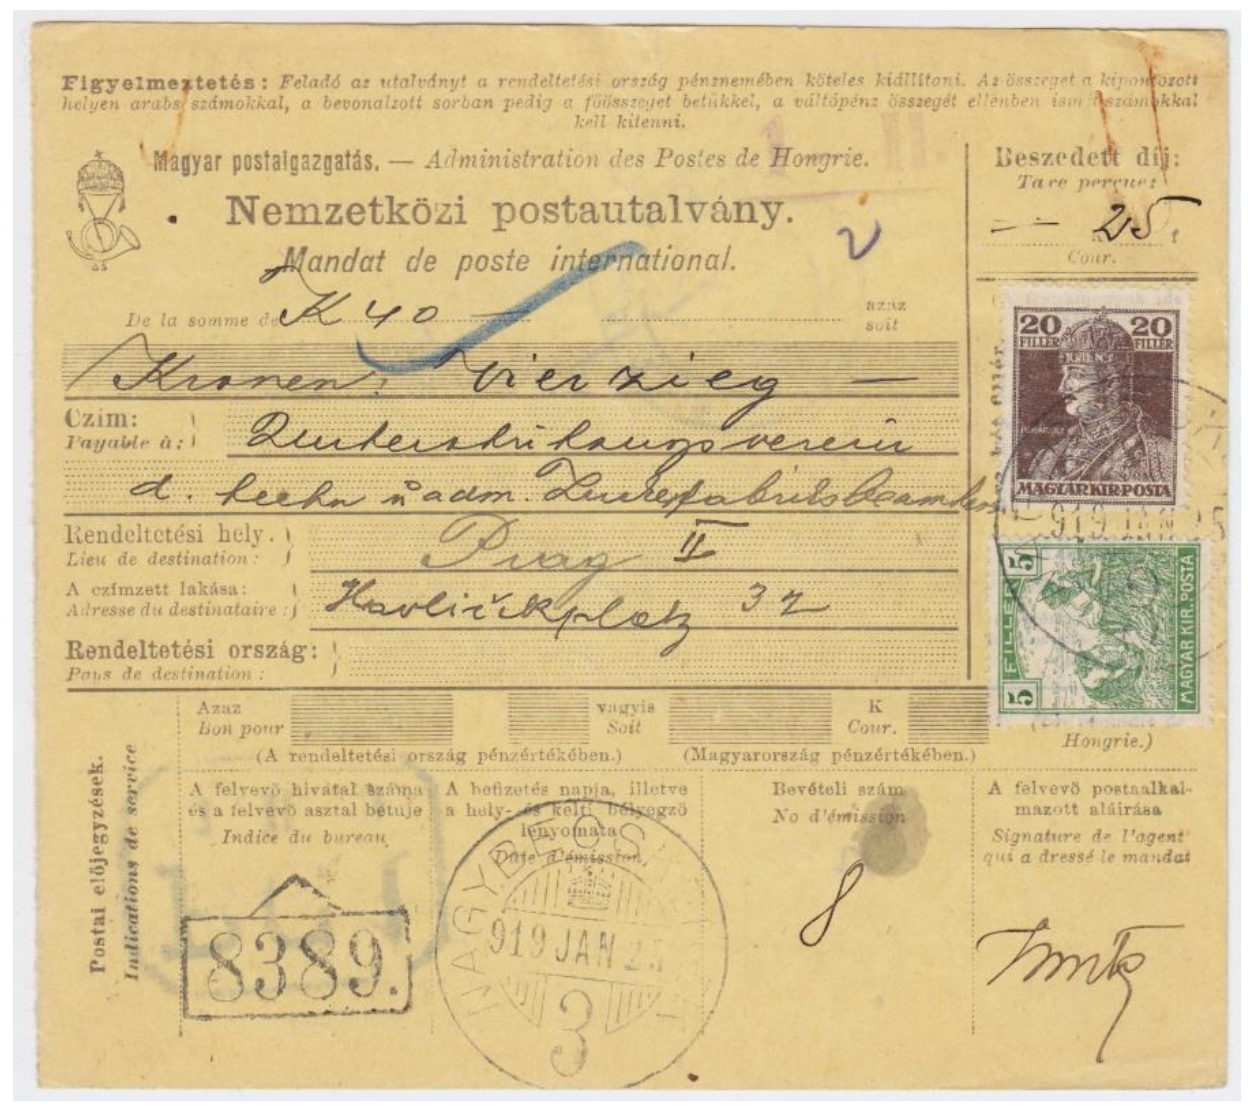 Figyelmeztetés: Feladó az utalványt a rendeltetési ország pénznemében köteles kiállítani. Az összeget a kipontozott
helyen arabs számokkal, a bevonalzott sorban pedig a főösszeget betükkel, a váltópénz összegét ellenben ism t számokkal
kell kitenni.
Magyar postaigazgatás. — Administration des Postes de Hongrie.
Nemzetközi postautalvány.
Mandat de poste international.
Beszedett díj:
Taxe perçue:
— — 25 f
Cour.
2
De la somme de K 40 — azaz
soit
Kronen: vierzieg —
Czím:
Payable à: Unterstützungsverein
d. techn u adm. Zuckerfabriksbeamten
Rendeltetési hely.
Lieu de destination: Prag II
A czímzett lakása:
Adresse du destinataire: Havličekplatz 32
Rendeltetési ország:
Pays de destination:
20 20
FILLÉR FILLÉR
MAGYAR KIR. POSTA
919 JAN 25
5 FILLÉR 5
MAGYAR KIR. POSTA
Hongrie.)
Azaz vagyis K
Bon pour Soit Cour.
(A rendeltetési ország pénzértékében.) (Magyarország pénzértékében.)
Postai előjegyzések.
Indications de service
A felvevő hivatal száma
és a felvevő asztal betüje
Indice du bureau
8389.
A befizetés napja, illetve
a hely- és kelti bélyegző
lenyomata
Date d'émission
NAGYBECS
919 JAN 25
3
Bevételi szám
No d'émission
8
A felvevő postaalkal-
mazott aláirása
Signature de l'agent
qui a dressé le mandat